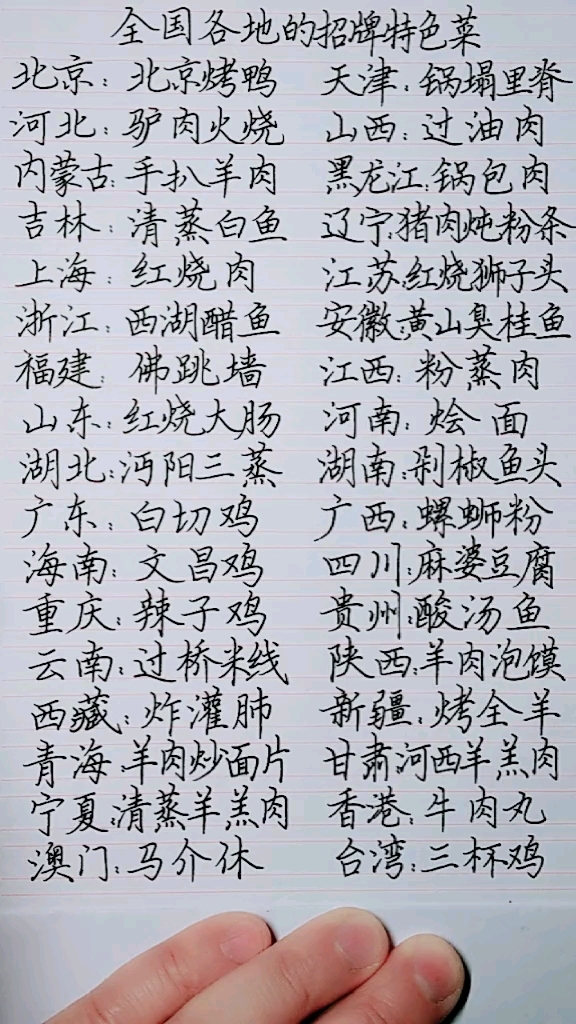 全国各地的招牌特色菜
北京：北京烤鸭 天津：锅塌里脊
河北：驴肉火烧 山西：过油肉
内蒙古：手扒羊肉 黑龙江：锅包肉
吉林：清蒸白鱼 辽宁：猪肉炖粉条
上海：红烧肉 江苏：红烧狮子头
浙江：西湖醋鱼 安徽：黄山臭桂鱼
福建：佛跳墙 江西：粉蒸肉
山东：红烧大肠 河南：烩面
湖北：沔阳三蒸 湖南：剁椒鱼头
广东：白切鸡 广西：螺蛳粉
海南：文昌鸡 四川：麻婆豆腐
重庆：辣子鸡 贵州：酸汤鱼
云南：过桥米线 陕西：羊肉泡馍
西藏：炸灌肺 新疆：烤全羊
青海：羊肉炒面片 甘肃：河西羊羔肉
宁夏：清蒸羊羔肉 香港：牛肉丸
澳门：马介休 台湾：三杯鸡